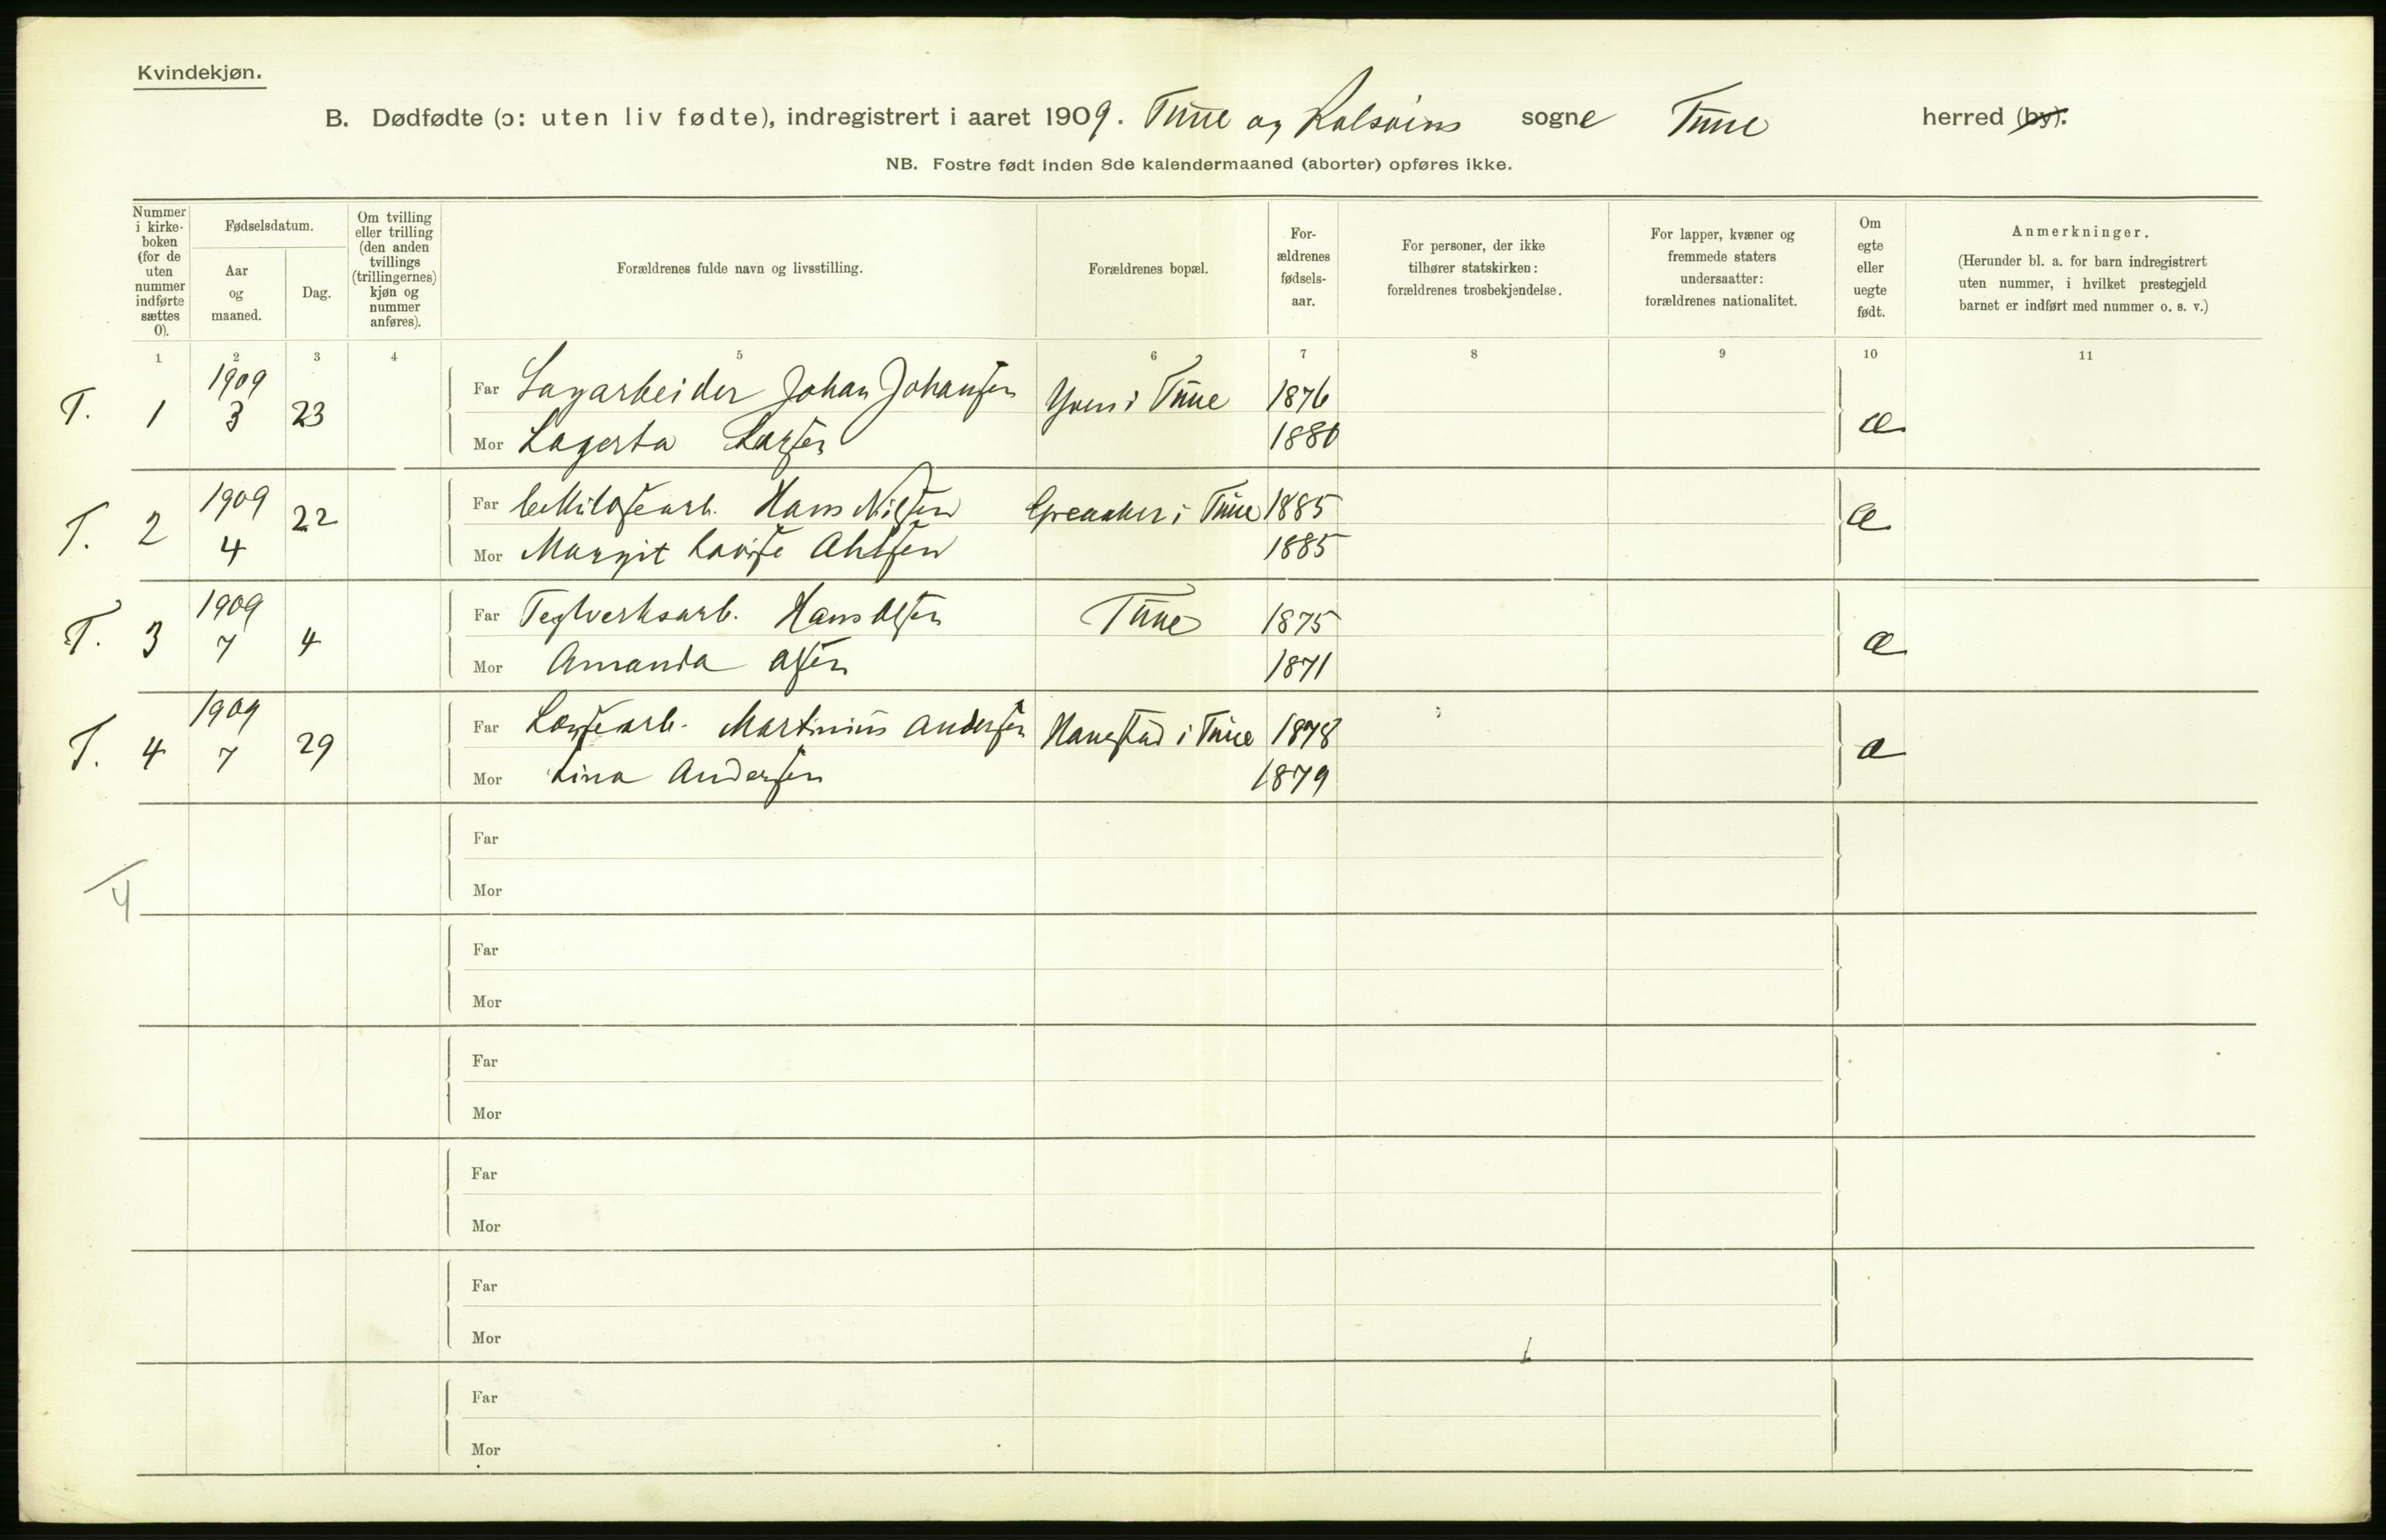 Kvindekjøn.
B. Dødfødte (ɔ: uten liv fødte), indregistrert i aaret 1909. Tune og Rolsøins sogne Tune herred (by).
NB. Fostre født inden 8de kalendermaaned (aborter) opføres ikke.
Nummer i kirke-boken (for de uten nummer indførte sættes 0).
Fødselsdatum.
Aar og maaned.
Dag.
Om tvilling eller trilling (den anden tvillings (trillingernes) kjøn og nummer anføres).
Forældrenes fulde navn og livsstilling.
Forældrenes bopæl.
For-ældrenes fødsels-aar.
For personer, der ikke tilhører statskirken: forældrenes trosbekjendelse.
For lapper, kvæner og fremmede staters undersaatter: forældrenes nationalitet.
Om egte eller uegte født.
Anmerkninger.
(Herunder bl. a. for barn indregistrert uten nummer, i hvilket prestegjeld barnet er indført med nummer o. s. v.)
1 2 3 4 5 6 7 8 9 10 11
T. 1 1909 3 23 Far Sagarbeider Johan Johansen Yven i Tune 1876 Æ
Mor Lagerta Larsen 1880
T. 2 1909 4 22 Far Cellulosearb. Hans Nilsen Greaaker i Tune 1885 Æ
Mor Margit Lovise Ahlsen 1885
T. 3 1909 7 4 Far Teglverksarb. Hans Olsen Tune 1875 Æ
Mor Amanda Olsen 1871
T. 4 1909 7 29 Far Lensearb. Martinius Andersen Hanestad i Tune 1878 Æ
Mor Lina Andersen 1879
Far
Mor
4
Far
Mor
Far
Mor
Far
Mor
Far
Mor
Far
Mor